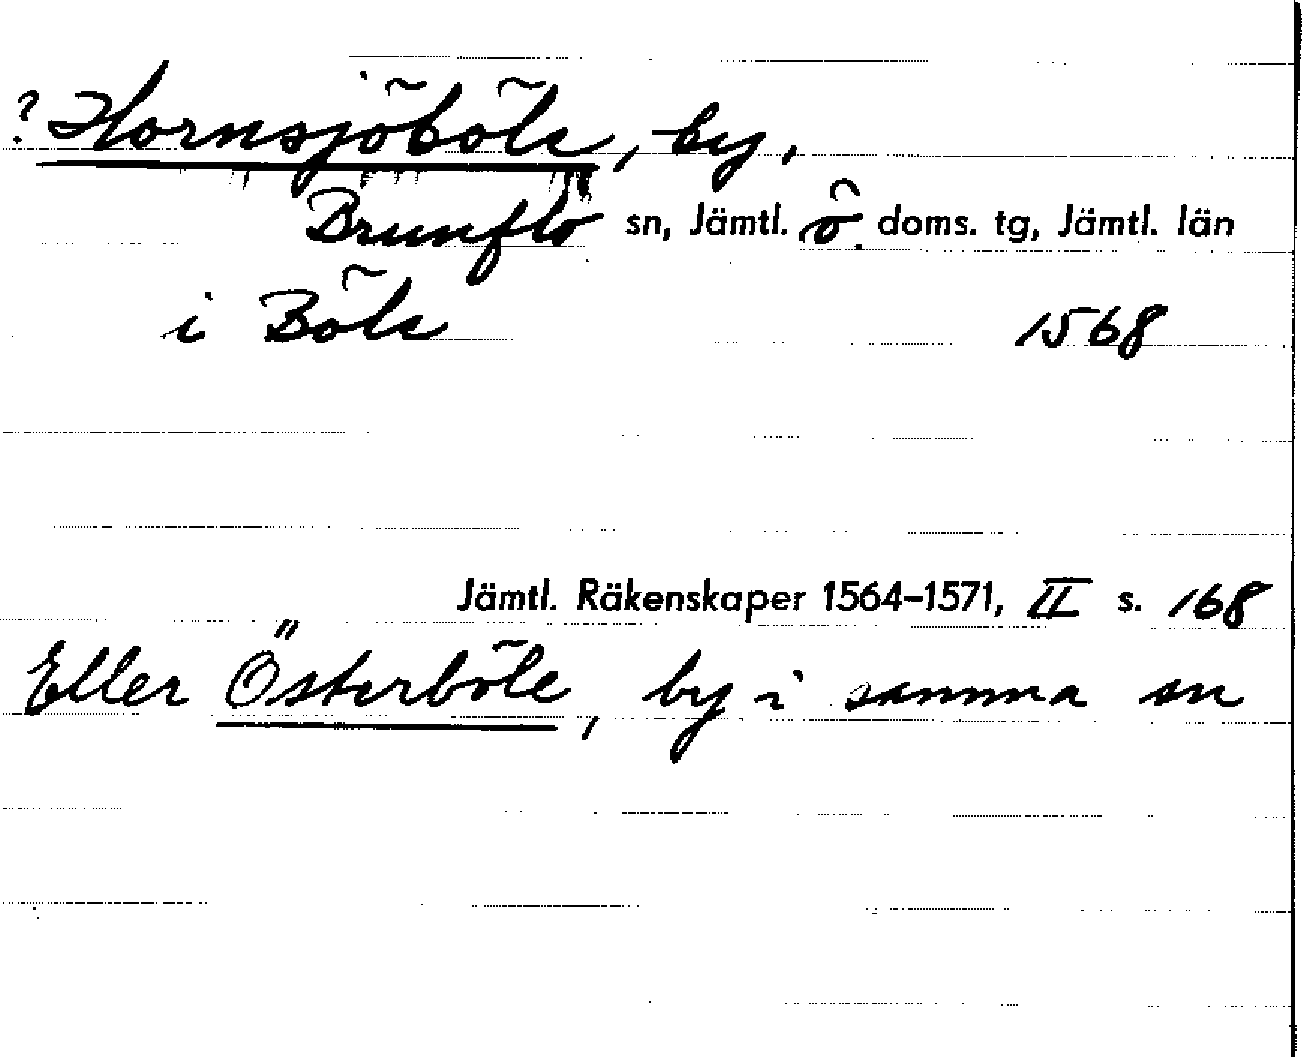 ? Hornsjöböle, by,
Brunflo sn, Jämtl. ö. doms. tg, Jämtl. län
i Böle 1568
Jämtl. Räkenskaper 1564–1571, II s. 168
Eller Österböle, by i samma sn